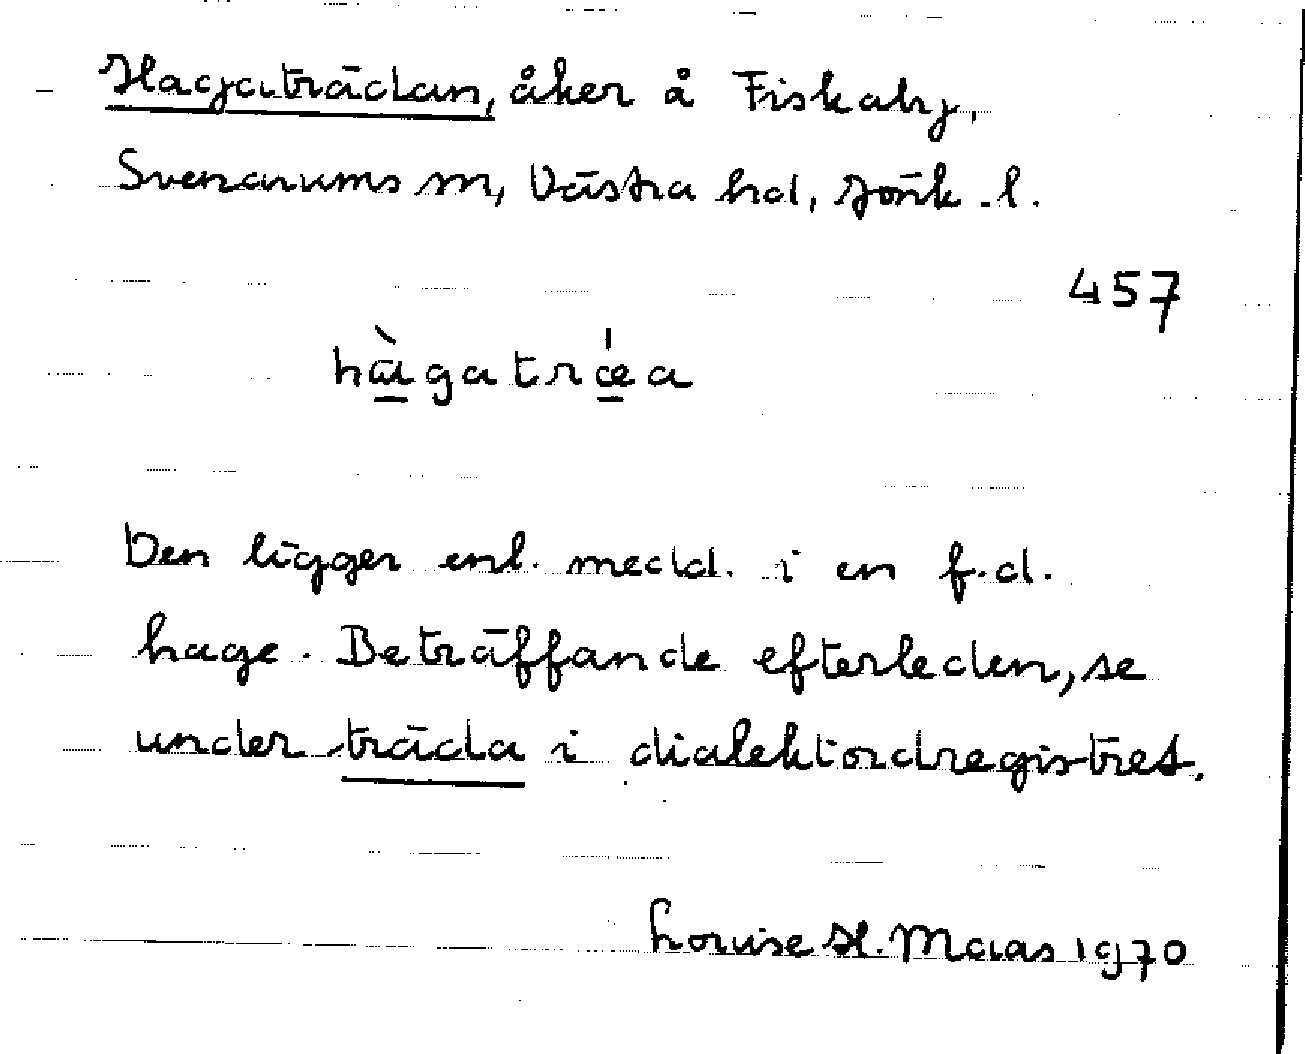 Hagaträdan, åker å Fiskaby,
Svenarums sn, Västra hd, Jönk.l.
457
hàgatrǽa
Den ligger enl. medd. i en f.d.
hage. Beträffande efterleden, se
under träda i dialektordregistret.
Louise H. Maas 1970